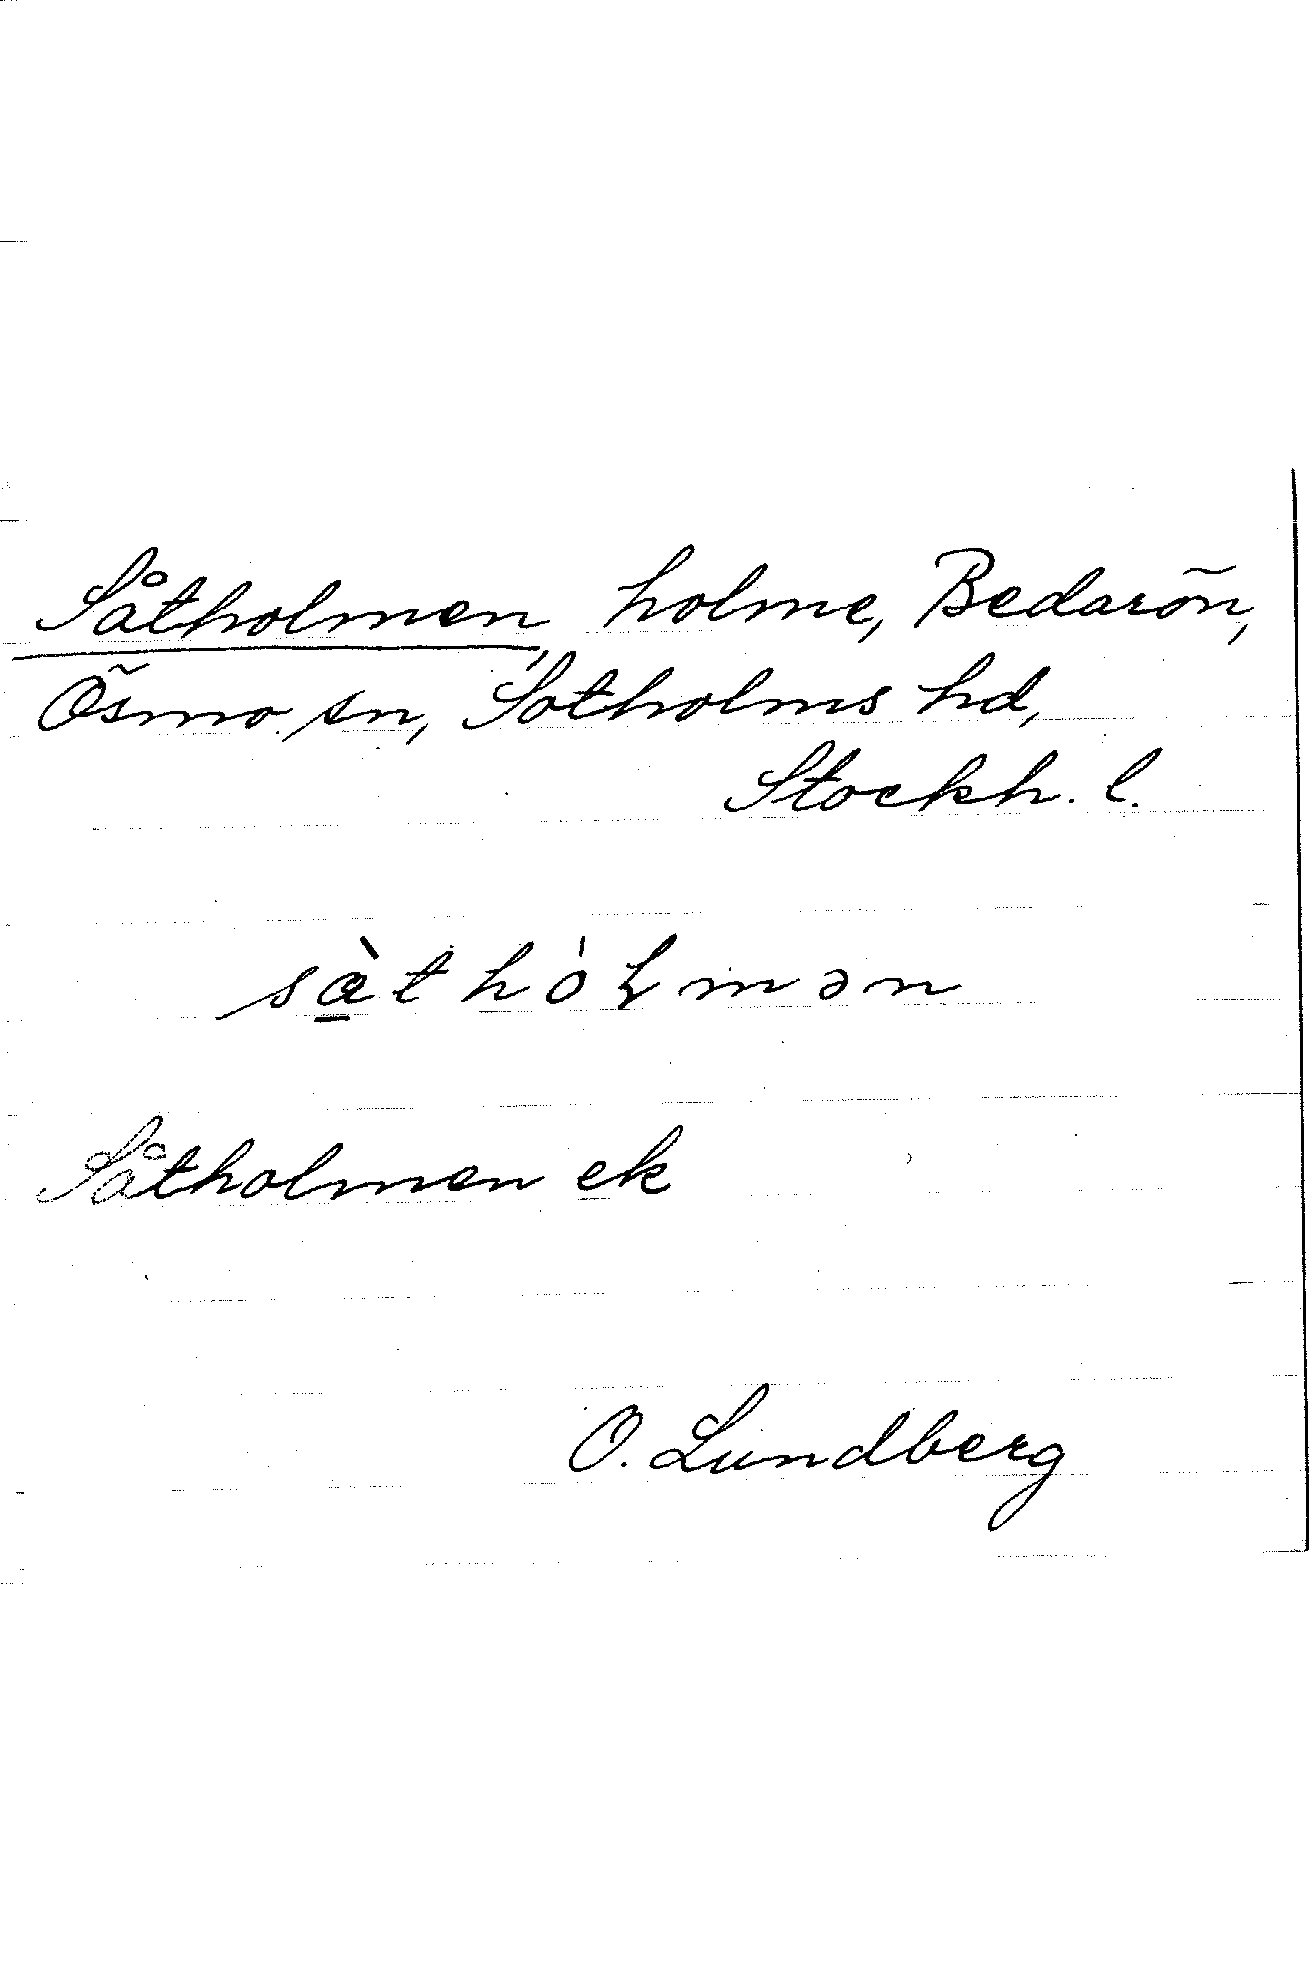 Såtholmen, holme, Bedarön,
Ösmo sn, Sotholms hd,
Stockh. l.
sà̱thólmən
Såtholmen ek
O. Lundberg